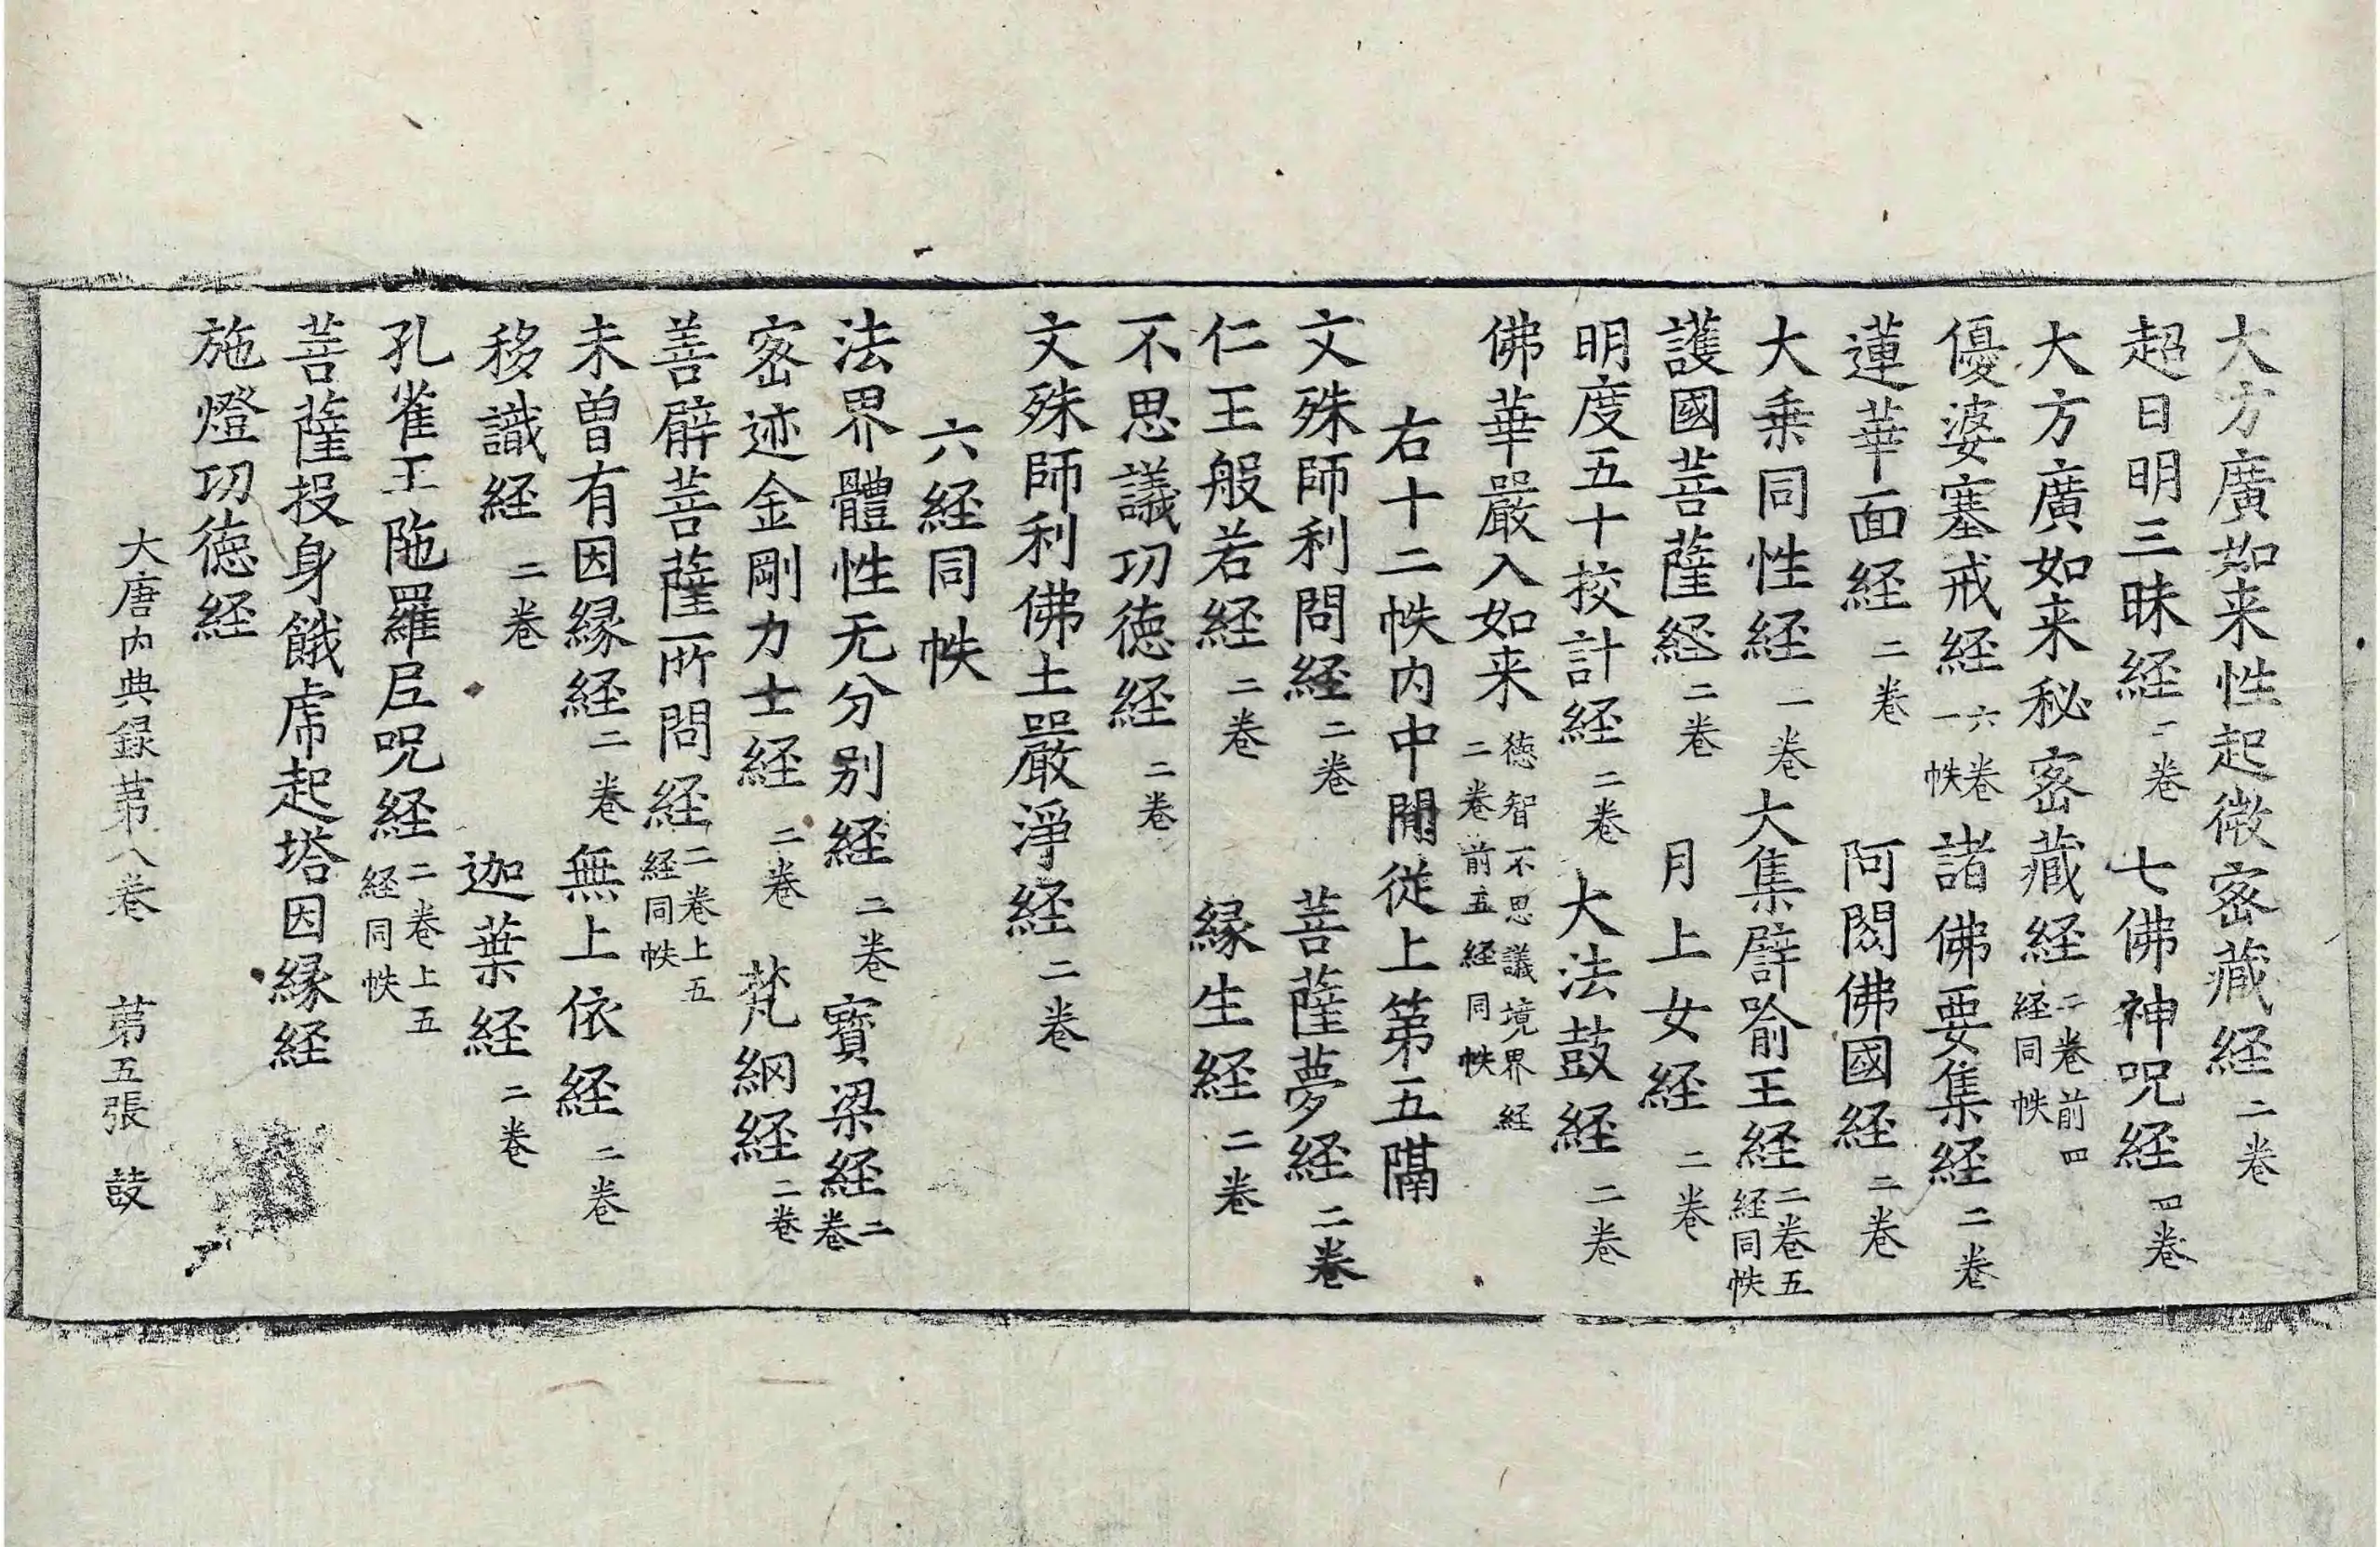 大方廣如来性起微密藏経二卷
超日明三昧経二卷 七佛神呪経四卷
大方廣如来秘密藏経二卷前四経同帙
優婆塞戒経六卷一帙 諸佛要集経二卷
蓮華面経二卷 阿閦佛國経二卷
大乗同性経一卷 大集譬喻王経二卷五経同帙
護國菩薩経二卷 月上女経二卷
明度五十挍計経二卷 大法鼓経二卷
佛華嚴入如来徳智不思議境界経二卷前五経同帙
右十二帙内中閒從上第五隔
文殊師利問経二卷 菩薩夢経二卷
仁王般若経二卷 縁生経二卷
不思議功徳経二卷
文殊師利佛土嚴淨経二卷
六経同帙
法界體性无分别経二卷 寳梁経二卷
密迹金剛力士経二卷 梵網経二卷
善臂菩薩所問経二卷上五経同帙
未曽有因縁経二卷 無上依経二卷
移識経二卷 迦葉経二卷
孔雀王陁羅尼呪経二卷上五経同帙
菩薩投身餓虎起塔因縁経
施燈功徳経
大唐内典録苐八卷 苐五張 鼓